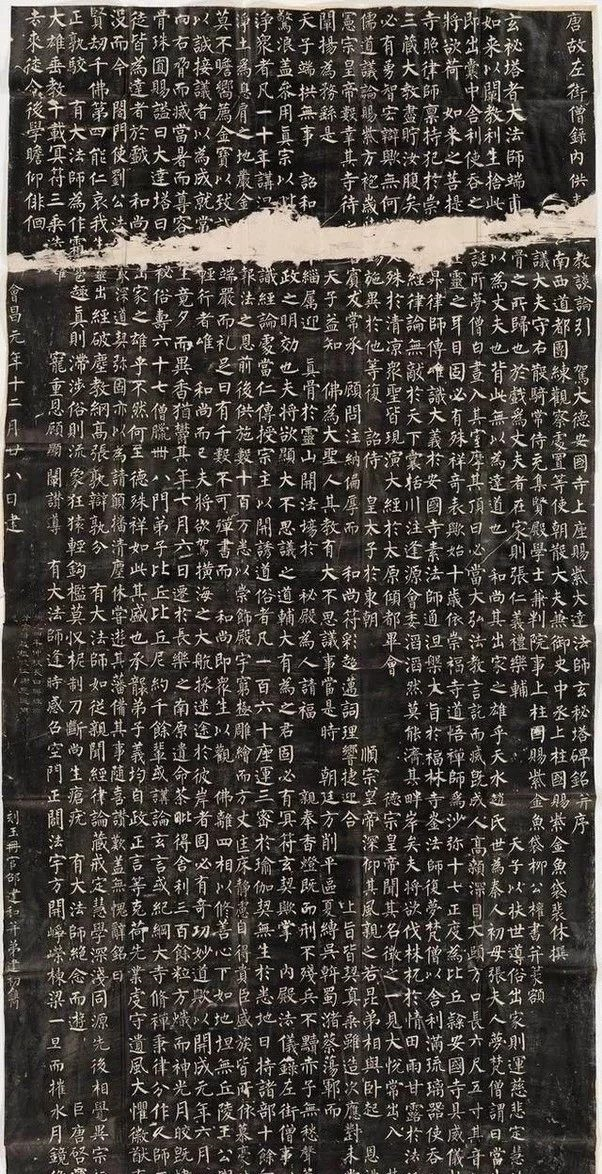 唐故左街僧錄內供 教談論引駕大德安國寺上座賜紫大達法師玄秘塔碑銘并序
南西道都團練觀察處置等使朝散大夫兼御史中丞上柱國賜紫金魚袋裴休撰
議大夫守右散騎常侍充集賢殿學士兼判院事上柱國賜紫金魚袋柳公權書并篆額
玄秘塔者大法師端甫 骨之所歸也於戲為丈夫者在家則張仁義禮樂輔 天子以扶世導俗出家則運慈悲定慧
如來以闡教利生捨此 以為丈夫也背此無以為達道也 和尚其出家之雄乎天水趙氏世為秦人初母張夫人夢梵僧謂曰當
即出囊中舍利使吞之 誕所夢僧白晝入其室摩其頂曰必當大弘法教言訖而滅既成人高顙深目大頤方口長六尺五寸其音
將欲荷 如來之菩提 生靈之耳目固必有殊祥奇表歟始十歲依崇福寺道悟禪師為沙彌十七正度為比丘隸安國寺具威儀
寺照律師稟持犯於崇 昇律師傳唯識大義於安國寺素法師通涅槃大旨於福林寺崟法師復夢梵僧以舍利滿琉璃器使吞
三藏大教盡貯汝腹矣 經律論無敵於天下囊括川注逢源會委滔滔然莫能濟其畔岸矣夫將欲伐株杌於情田雨甘露於法
必有勇智宏辯歟無何 殊於清涼眾聖皆現演大經於太原傾都畢會 德宗皇帝聞其名徵之一見大悅常出入
儒道議論賜紫方袍歲 錫施異於他等復 詔侍 皇太子於東朝 順宗皇帝深仰其風親之若昆弟相與臥起 恩
憲宗皇帝數幸其寺待 賓友常承 顧問注納偏厚而 和尚符彩超邁詞理響捷迎合 上旨皆契真乘雖造次應對未
闡揚為務繇是 天子益知 佛為大聖人其教有大不思議事當是時 朝廷方削平區夏縛吳斡蜀瀦蔡蕩鄆而
天子端拱無事 詔和 緇屬迎 真骨於靈山開法場於 秘殿為人請福 親奉香燈既而刑不殘兵不黷赤子無愁聲
驚浪蓋參用真宗以毗 政之明效也夫將欲顯大不思議之道輔大有為之君固必有冥符玄契歟掌 內殿法儀錄左街僧事
淨眾者凡一十年講涅 識經論處當仁傳授宗主以開誘道俗者凡一百六十座運三密於瑜伽契無生於悉地日持諸部十餘
淨土為息肩之地嚴金 報法之恩前後供施數十百萬悉以崇飾殿宇窮極雕繪而方丈匡床靜慮自得貴臣盛族皆所依慕豪
莫不瞻嚮薦金寶以致 端嚴而禮足日有千數不可殫書而 和尚即眾生以觀 佛離四相以修善心下如地坦無丘陵王公
以誠接議者以為成就常 輕行者唯 和尚而已夫將欲駕橫海之大航拯迷途於彼岸者固必有奇功妙道歟以開成元年六月
向右脅而滅當暑而尊容 生竟夕而異香猶鬱其年七月六日遷於長樂之南原遺命茶毗得舍利三百餘粒方熾而神光月皎既燼
骨珠圓賜謚曰大達塔曰 秘俗壽六十七僧臘卌八門弟子比丘比丘尼約千餘輩或講論玄言或紀綱大寺修禪秉律分作人師
徒皆為達者於戲 和尚 出家之雄乎不然何至德殊祥如此其盛也承襲弟子義均自政正言等克荷先業虔守遺風大懼徽猷
沒而今 閤門使劉公法 最深道契彌固亦以為請願播清塵休嘗遊其藩備其事隨喜讚嘆蓋無愧辭銘曰
賢劫千佛第四能仁哀我生 出經破塵教綱高張孰辯孰分 有大法師如從親聞經律論藏戒定慧學深淺同源先後相覺異宗
正孰駁 有大法師為作霜 趣真則滯涉俗則流象狂猿輕鉤檻莫收柅制刀斷尚生瘡疣 有大法師絕念而遊 巨唐啟
大雄垂教千載冥符三乘迭 寵重恩顧顯闡讚導 有大法師逢時感召空門正闢法宇方開崢嶸棟梁一旦而摧水月鏡
去來徒令後學瞻仰徘徊
會昌元年十二月廿八日建 刻玉冊官邵建和并弟建初鐫